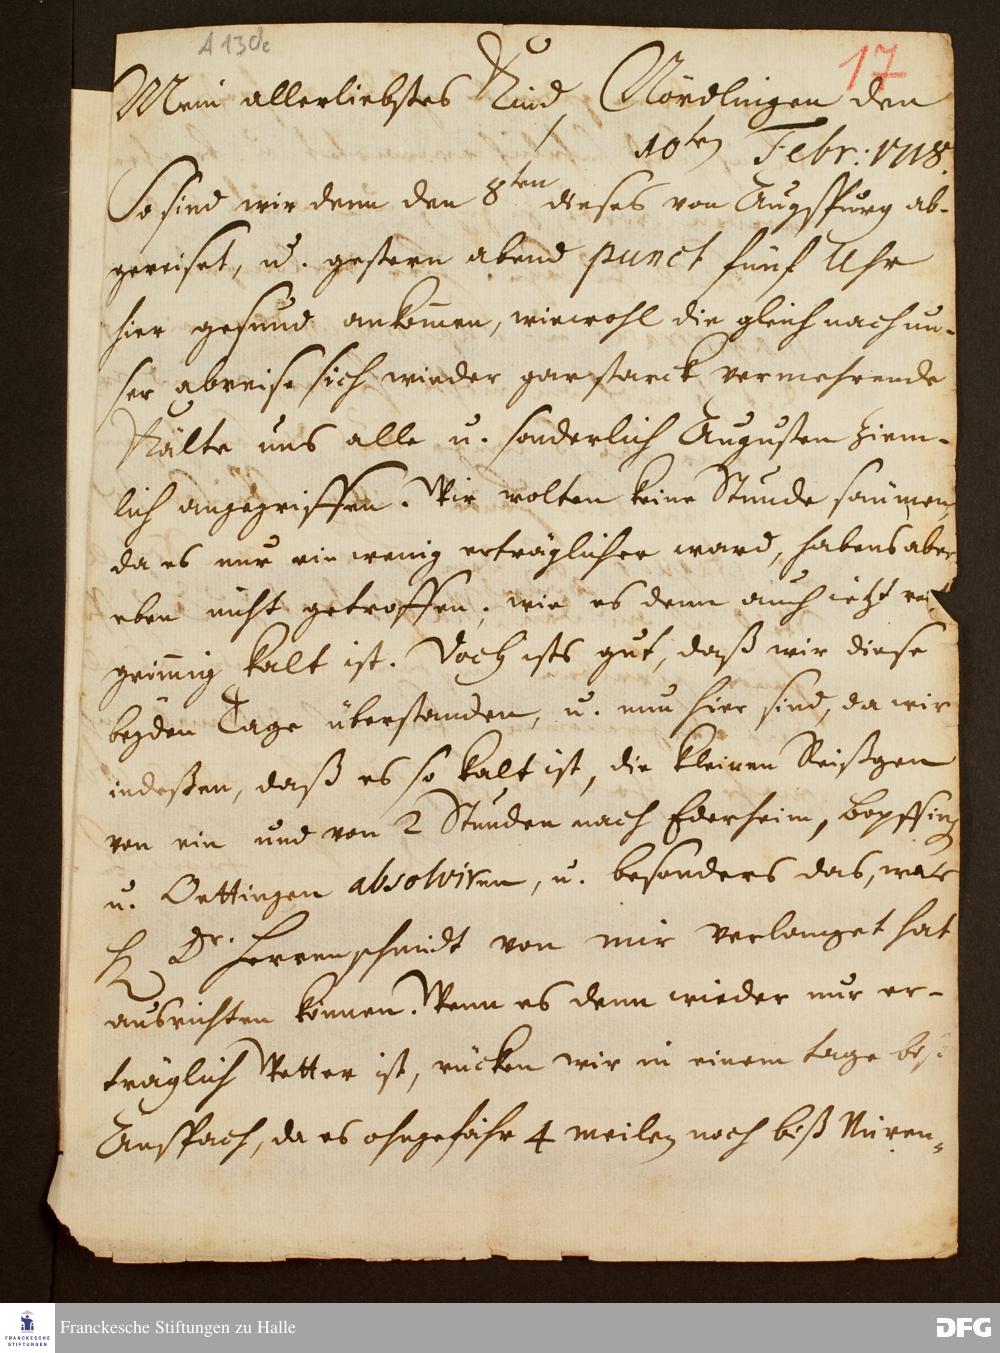 A 130c
17
Mein allerliebstes Kind, Nördlingen den
10ten Febr: 1718.
So sind wir denn den 8ten dieses von Augspurg ab-
gereiset, u. gestern abend punct fünf Uhr
hier gesund ankom̄en, wiewohl die gleich nach un-
ser abreise sich wieder gar starck vermehrende
Kälte uns alle u. sonderlich Augusten ziem-
lich angegriffen. Wir wolten keine Stunde säumen,
da es nur ein wenig erträglicher ward, habens aber
eben nicht getroffen, wie es denn auch jetzt
grim̄ig kalt ist. Doch ists gut, daß wir diese
beyden Tage überstanden, u. nun hier sind, da wir
indeßen, daß es so kalt ist, die kleinen Reißgen
von ein und von 2 Stunden nach Ederheim, Bopffing
u. Oettingen absolviren, u. besonders das, was
H Dr. Herrnschmidt von mir verlanget hat
ausrichten können. Wenn es denn wieder nur er-
träglich Wetter ist, rücken wir in einem tage biß
Anspach, da es ohngefähr 4 meilen noch biß Nüren-
Franckesche Stiftungen zu Halle
FRANCKESCHE
STIFTUNGEN
DFG